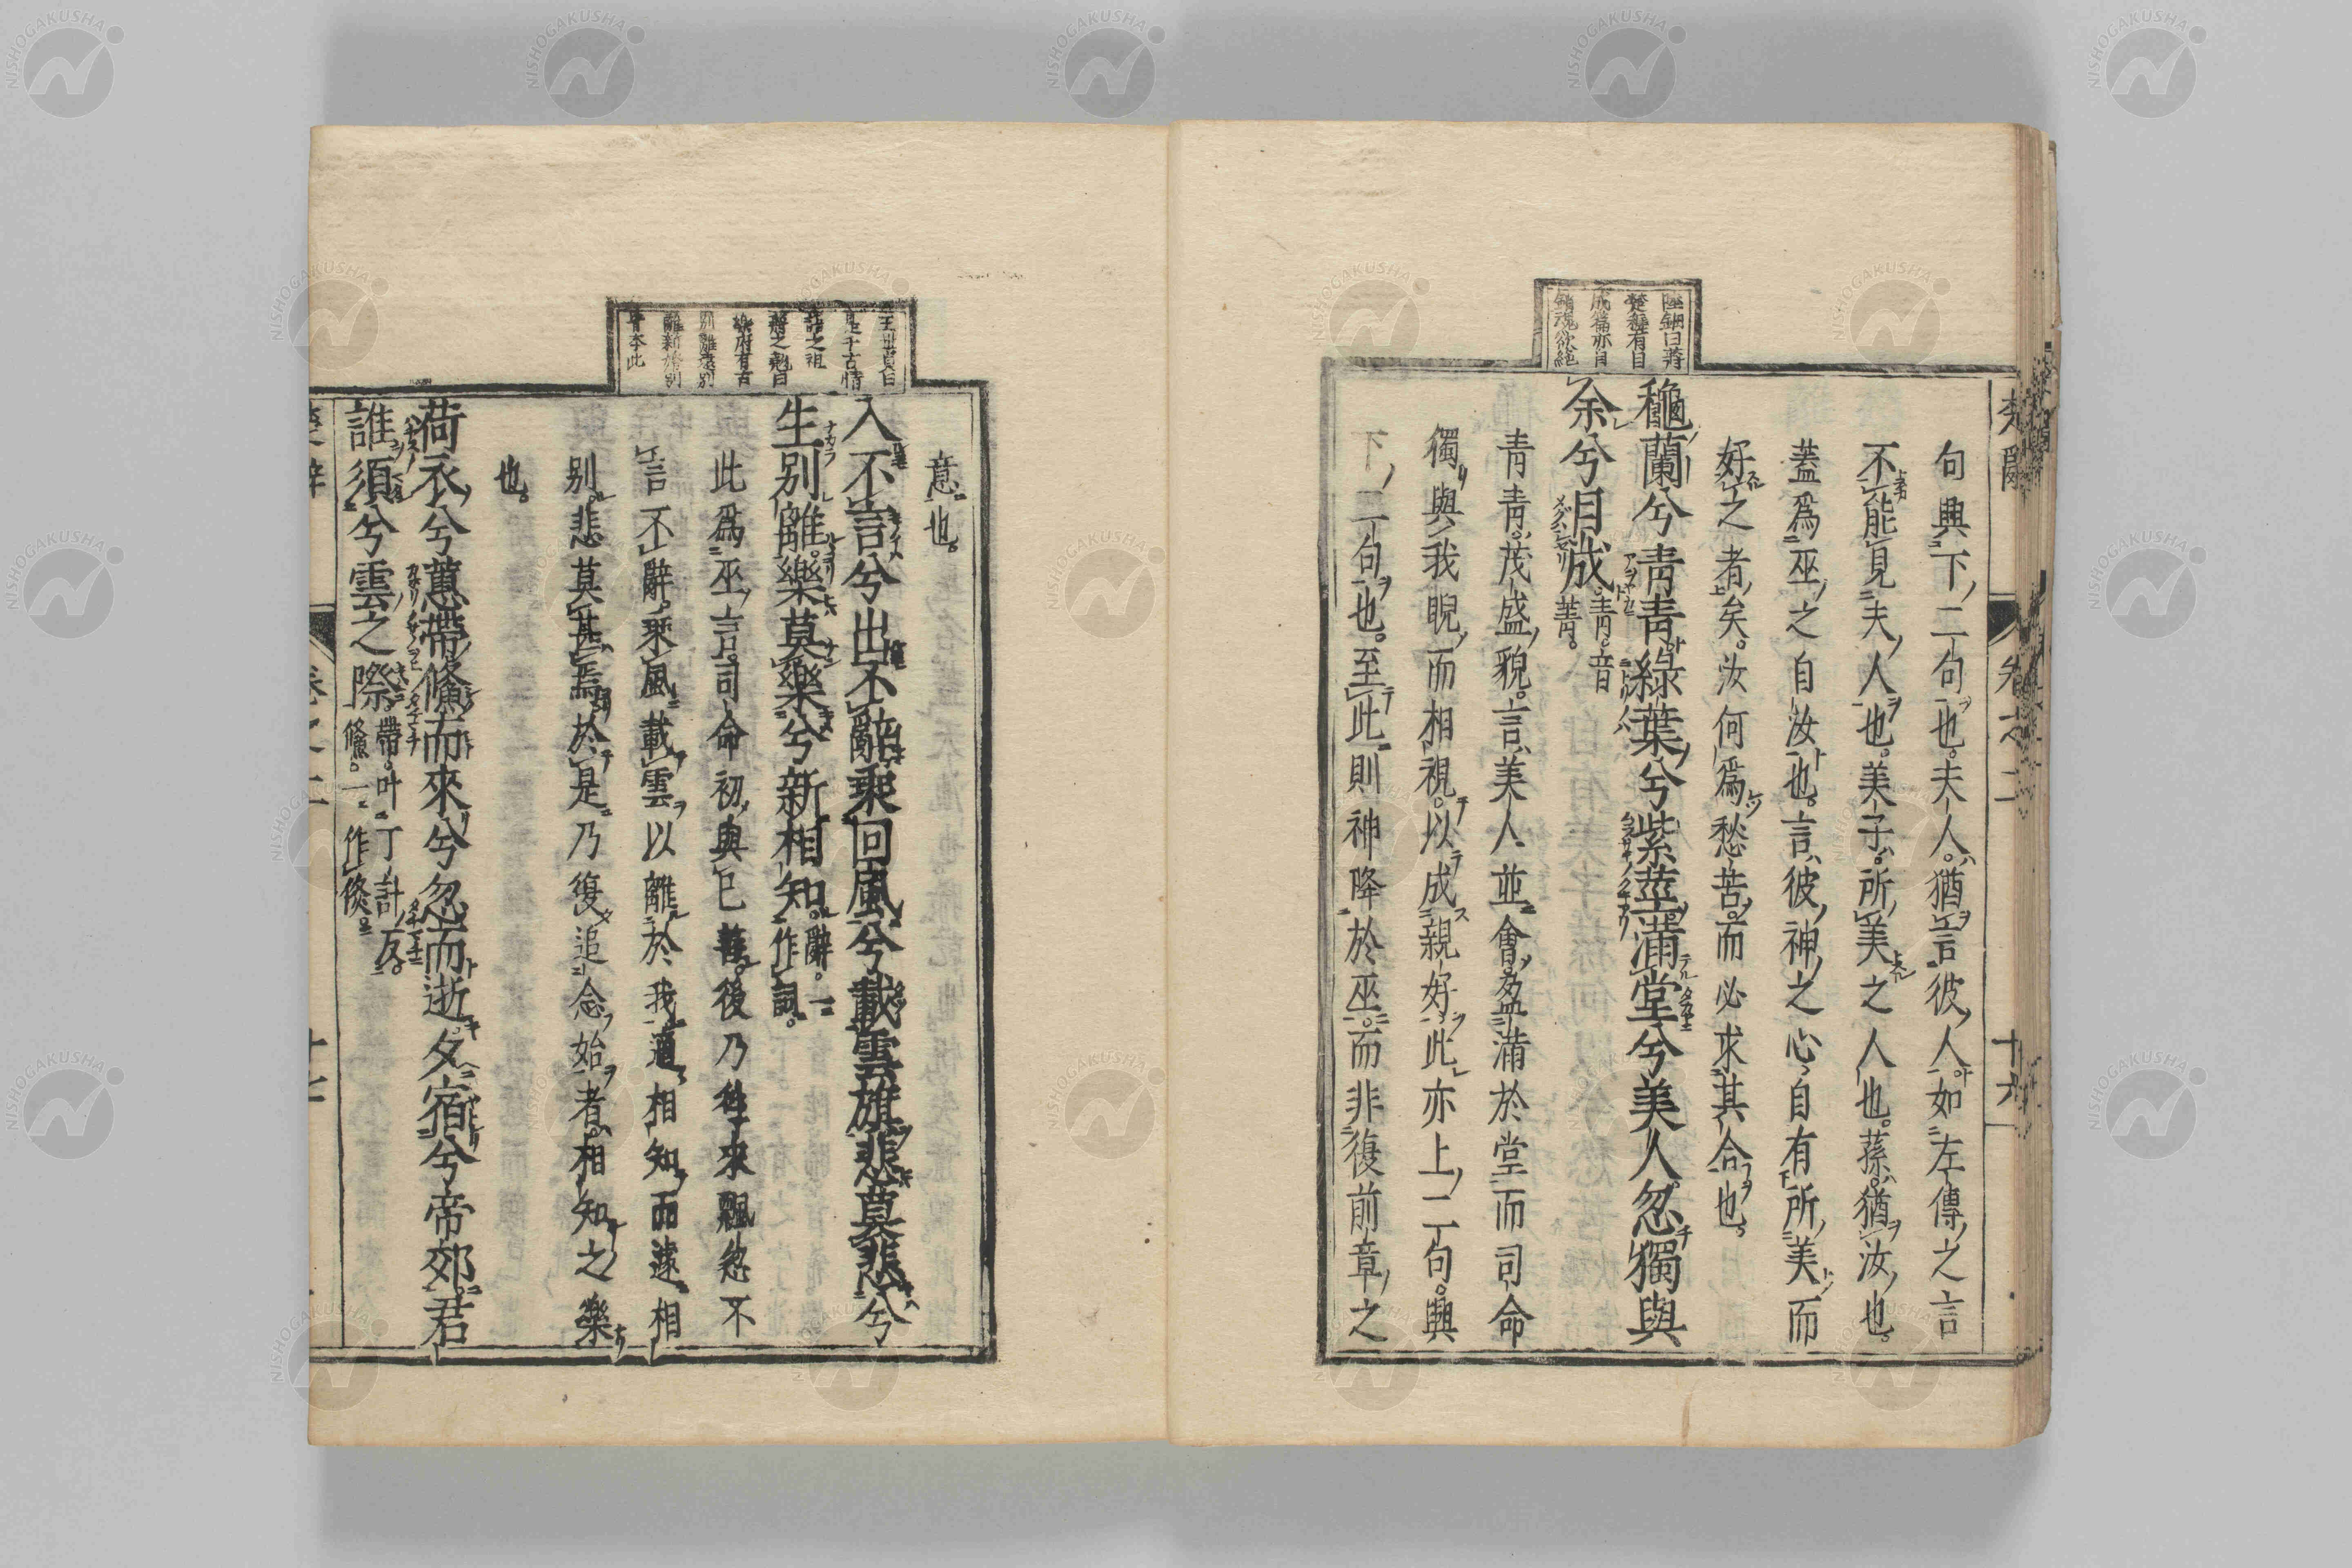 楚辭 卷之二 十六
句興下二句也。夫人。猶言彼人。如左傳之言
不能見夫人也。美子。所美之人也。蓀。猶汝也。
蓋爲巫之自汝也。言彼神之心。自有所美而
好之者矣。汝何爲愁苦。而必求其合也。
穐蘭兮青青。綠葉兮紫莖。滿堂兮美人。忽獨與
余兮目成。青。音菁。
青青。茂盛貌。言美人並會。盈滿於堂。而司命
獨與我睨而相視。以成親好。此亦上二句。興
下二句也。至此則神降於巫。而非復前章之
陸鈿曰
楚騷有目
成篇亦目
銷魂欲絶
意也。
入不言兮出不辭。乘回風兮載雲旗。悲莫悲兮
生別離。樂莫樂兮新相知。辭。一作詞。
此爲巫言。司命初與已善。後乃往來飄忽。不
言不辭。乘風載雲。以離於我。適相知而遽相
別。悲莫甚焉。於是乃復追念始者相知之樂
也。
荷衣兮蕙帶。儵而來兮忽而逝。夕宿兮帝郊。君
誰須兮雲之際。帶。叶丁計反。儵。一作倏。
王世貞曰
是千古情
語之祖
樂府有古
別離遠別
離新婚別
皆本此
楚辭 卷之二 十七
NISHOGAKUSHA